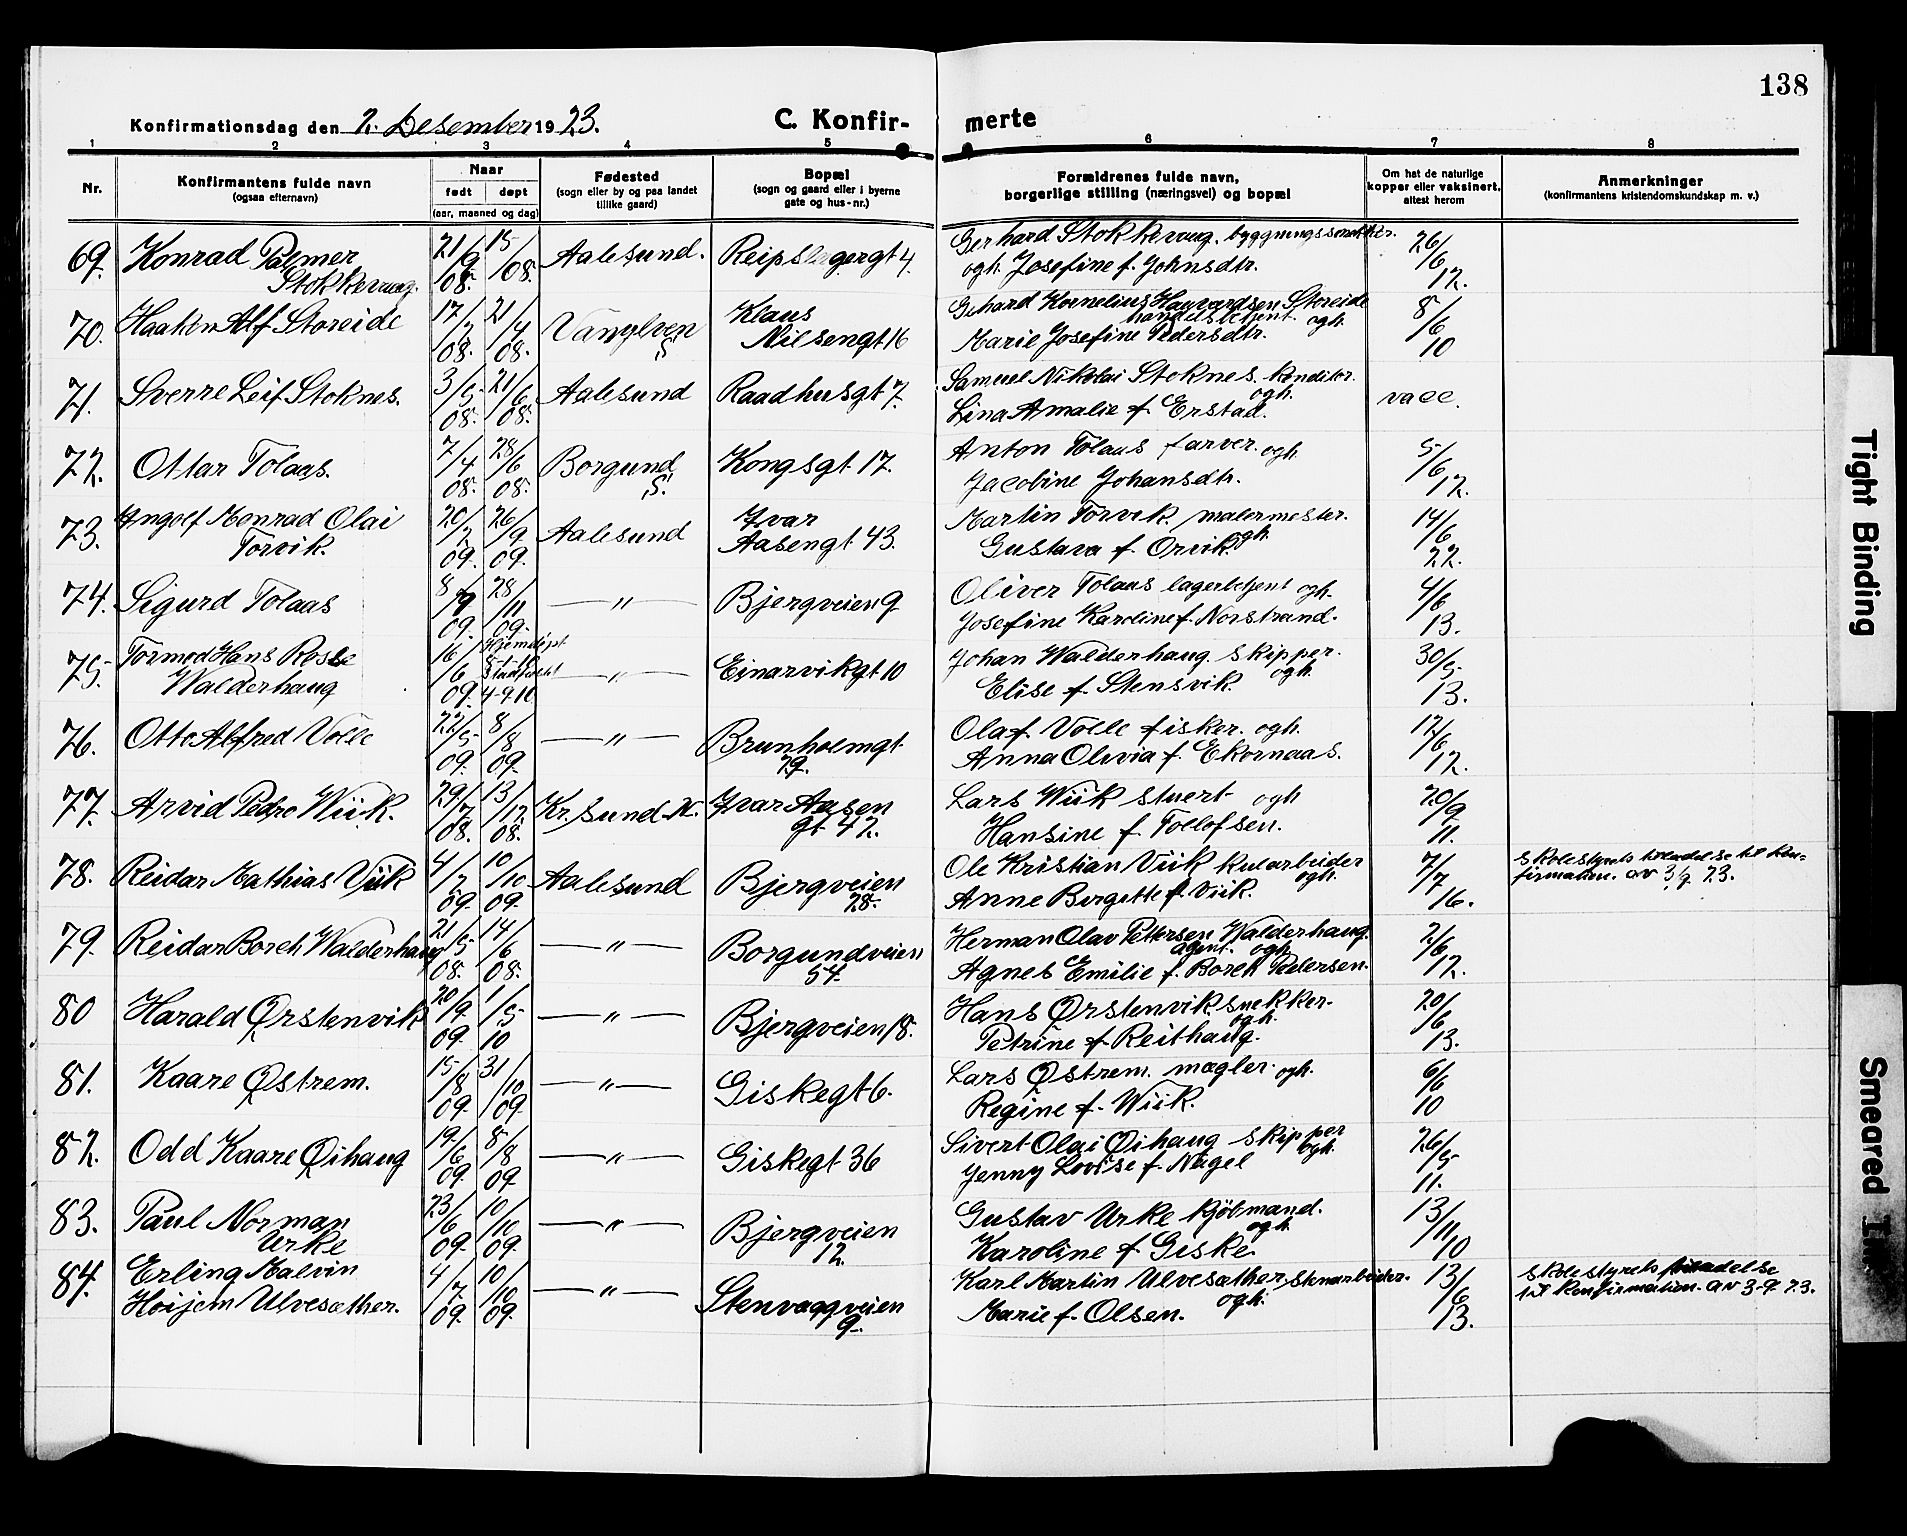 138
Konfirmationsdag den 2. Desember 1923.
C. Konfir-
merte
1 2 3 4 5 6 7 8
Nr.
Konfirmantens fulde navn
(ogsaa efternavn)
Naar
født døpt
(aar, maaned og dag)
Fødested
(sogn eller by og paa landet
tillike gaard)
Bopæl
(sogn og gaard eller i byerne
gate og hus-nr.)
Forældrenes fulde navn,
borgerlige stilling (næringsvei) og bopæl
Om hat de naturlige
kopper eller vaksinert,
attest herom
Anmerkninger
(konfirmantens kristendomskundskap m. v.)
69. Konrad Palmer Aalesund. Reipslagergt 4. Gerhard Stokkevaag. byggningssnekker. 26/6 12.
Stokkevaag. 21/9 08. 15/ 08. ogh. Josefine f. Johnsdtr.
70. Haakon Alf Storeide 17/2 08. 21/4 08. Vanylven S Klaus Gerhard Kornelius Havardsen Storeide 8/6 10
Nilsengt 16 handelsbetjent. ogh.
Marie Josefine Pedersdtr.
71. Sverre Leif Stoknes. 3/5 08. 21/6 08. Aalesund Raadhusgt 7. Samuel Nikolai Stoknes. konditor. vacc.
ogh.
Lina Amalie f. Erstad.
72. Ottar Tolaas. 7/4 08. 28/6 08. Borgund S. Kongsgt 17. Anton Tolaas farver. ogh. 5/6 12.
Jacobine Johansdtr.
73. Ingolf Monrad Olai 20/2 09. 26/9 09. Aalesund Ivar Martin Torvik. malermester. 14/6 22.
Torvik. Aasengt 43. ogh.
Gustava f. Orvik
74. Sigurd Tolaas 8/9 09. 28/11 09. —"— Bjergveien 9 Oliver Tolaas lagerbetjent ogh. 4/6 13.
Josefine Karoline f. Norstrand.
75. Tormod Hans Rosse 16/6 09. Hjemdøpt 4-9-10 —"— Einarvikgt 10 Johan Walderhaug. skipper. 30/5 13.
Walderhaug ogh.
Elise f. Stensvik.
76. Otto Alfred Volle 22/5 09. 8/8 09. —"— Brunholmgt 29. Olaf Volle fisker. ogh. 12/6 12.
Anna Olivia f. Ekornaas.
77. Arvid Pedro Wiik. 29/7 08. 13/12 08. Kr.sund N. Ivar Aasen Lars Wiik stuert ogh 20/9 11.
gt 42. Hansine f. Tollofsen.
78. Reidar Mathias Viik 4/2 09. 10/10 09. Aalesund Bjergveien 28. Ole Kristian Viik kularbeider 7/7 16. skolestyrets tiladelse til kon-
ogh. firmation. av 3/9 23.
Anne Bergitte f. Viik.
79. Reidar Borch Walderhaug 21/5 08. 14/6 08. —"— Borgundveien 54. Herman Olav Pettersen Walderhaug. 2/6 12.
agent. ogh.
Agnes Emilie f. Borch Pedersen.
80 Harald Ørstenvik 20/9 09. 1/5 10 —"— Bjergveien 18. Hans Ørstenvik snekker. 20/6 13.
ogh.
Petrine f. Reithaug.
81. Kaare Østrem. 15/8 09. 31/10 09. —"— Giskegt 6. Lars Østrem. mægler. ogh. 6/6 10
Regine f. Wiik.
82. Odd Kaare Øihaug 19/6 09. 8/8 09. —"— Giskegt 36 Sivert Olai Øihaug skipper 26/5 11.
ogh.
Jenny Lovise f. Nagel
83. Paul Norman 23/6 09. 10/10 09. —"— Bjergveien 12. Gustav Urke kjøbmand. 13/11 10
Urke ogh.
Karoline f Giske.
84. Erling Malvin 4/7 09. 10/10 09. —"— Stenvaagveien 9. Karl Martin Ulvesæther, stenarbeider. 13/6 13. skolestyrets tiladelse
Høijem Ulvesæther. ogh. til konfirmation. av 3-9 23.
Marie f. Olsen.
Tight Binding
Smeared